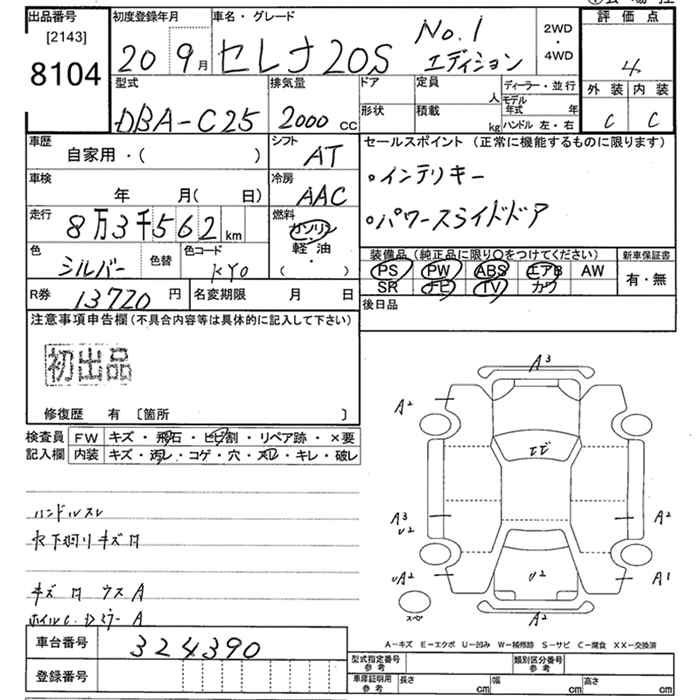 出品番号
[2143]
8104
初度登録年月
20 9月
車名・グレード
セレナ20S
No.1
エディション
2WD
・
4WD
評価点
4
外装 内装
C C
型式
DBA-C25
排気量
2000 cc
ドア
形状
定員
人
積載
kg
ディーラー・並行
モデル
年式 年
ハンドル 左・右
車歴
自家用・( )
シフト
AT
車検
年 月( 日)
冷房
AAC
走行
8万3千562 km
燃料
ガソリン
軽・油
・( )
色
シルバー
色替
色コード
KY0
R券
13720 円
名変期限 月 日
セールスポイント (正常に機能するものに限ります)
・インテリキー
・パワースライドドア
装備品 (純正品に限り○をつけてください)
PS PW ABS エアB AW
SR ナビ TV カワ
新車保証書
有・無
後日品
注意事項申告欄(不具合内容等は具体的に記入して下さい)
初出品
修復歴 有 〔箇所 〕
検査員
記入欄
FW キズ・飛石・ヒビ割・リペア跡・×要
内装 キズ・汚レ・コゲ・穴・スレ・キレ・破レ
ハンドルスレ
キズ 凹 ウス A
ホイルC. Dミラー A
A3
A2
ヒビ
A3
U2
A2
UA2
U2
A1
A2
スペ
A-キズ E-エクボ U-凹み W-補修跡 S-サビ C-腐食 XX-交換済
車台番号 324390
登録番号
型式指定番号
参考
類別区分番号
参考
車庫証明用
参考
長さ cm 幅 cm 高さ cm